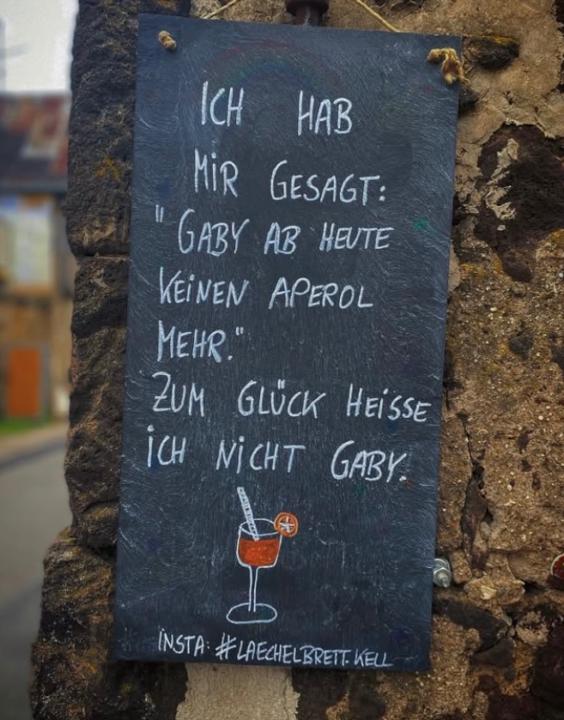 ICH HAB
MIR GESAGT:
"GABY AB HEUTE
KEINEN APEROL
MEHR."
ZUM GLÜCK HEISSE
ICH NICHT GABY.
INSTA: #LAECHELBRETT.KELL